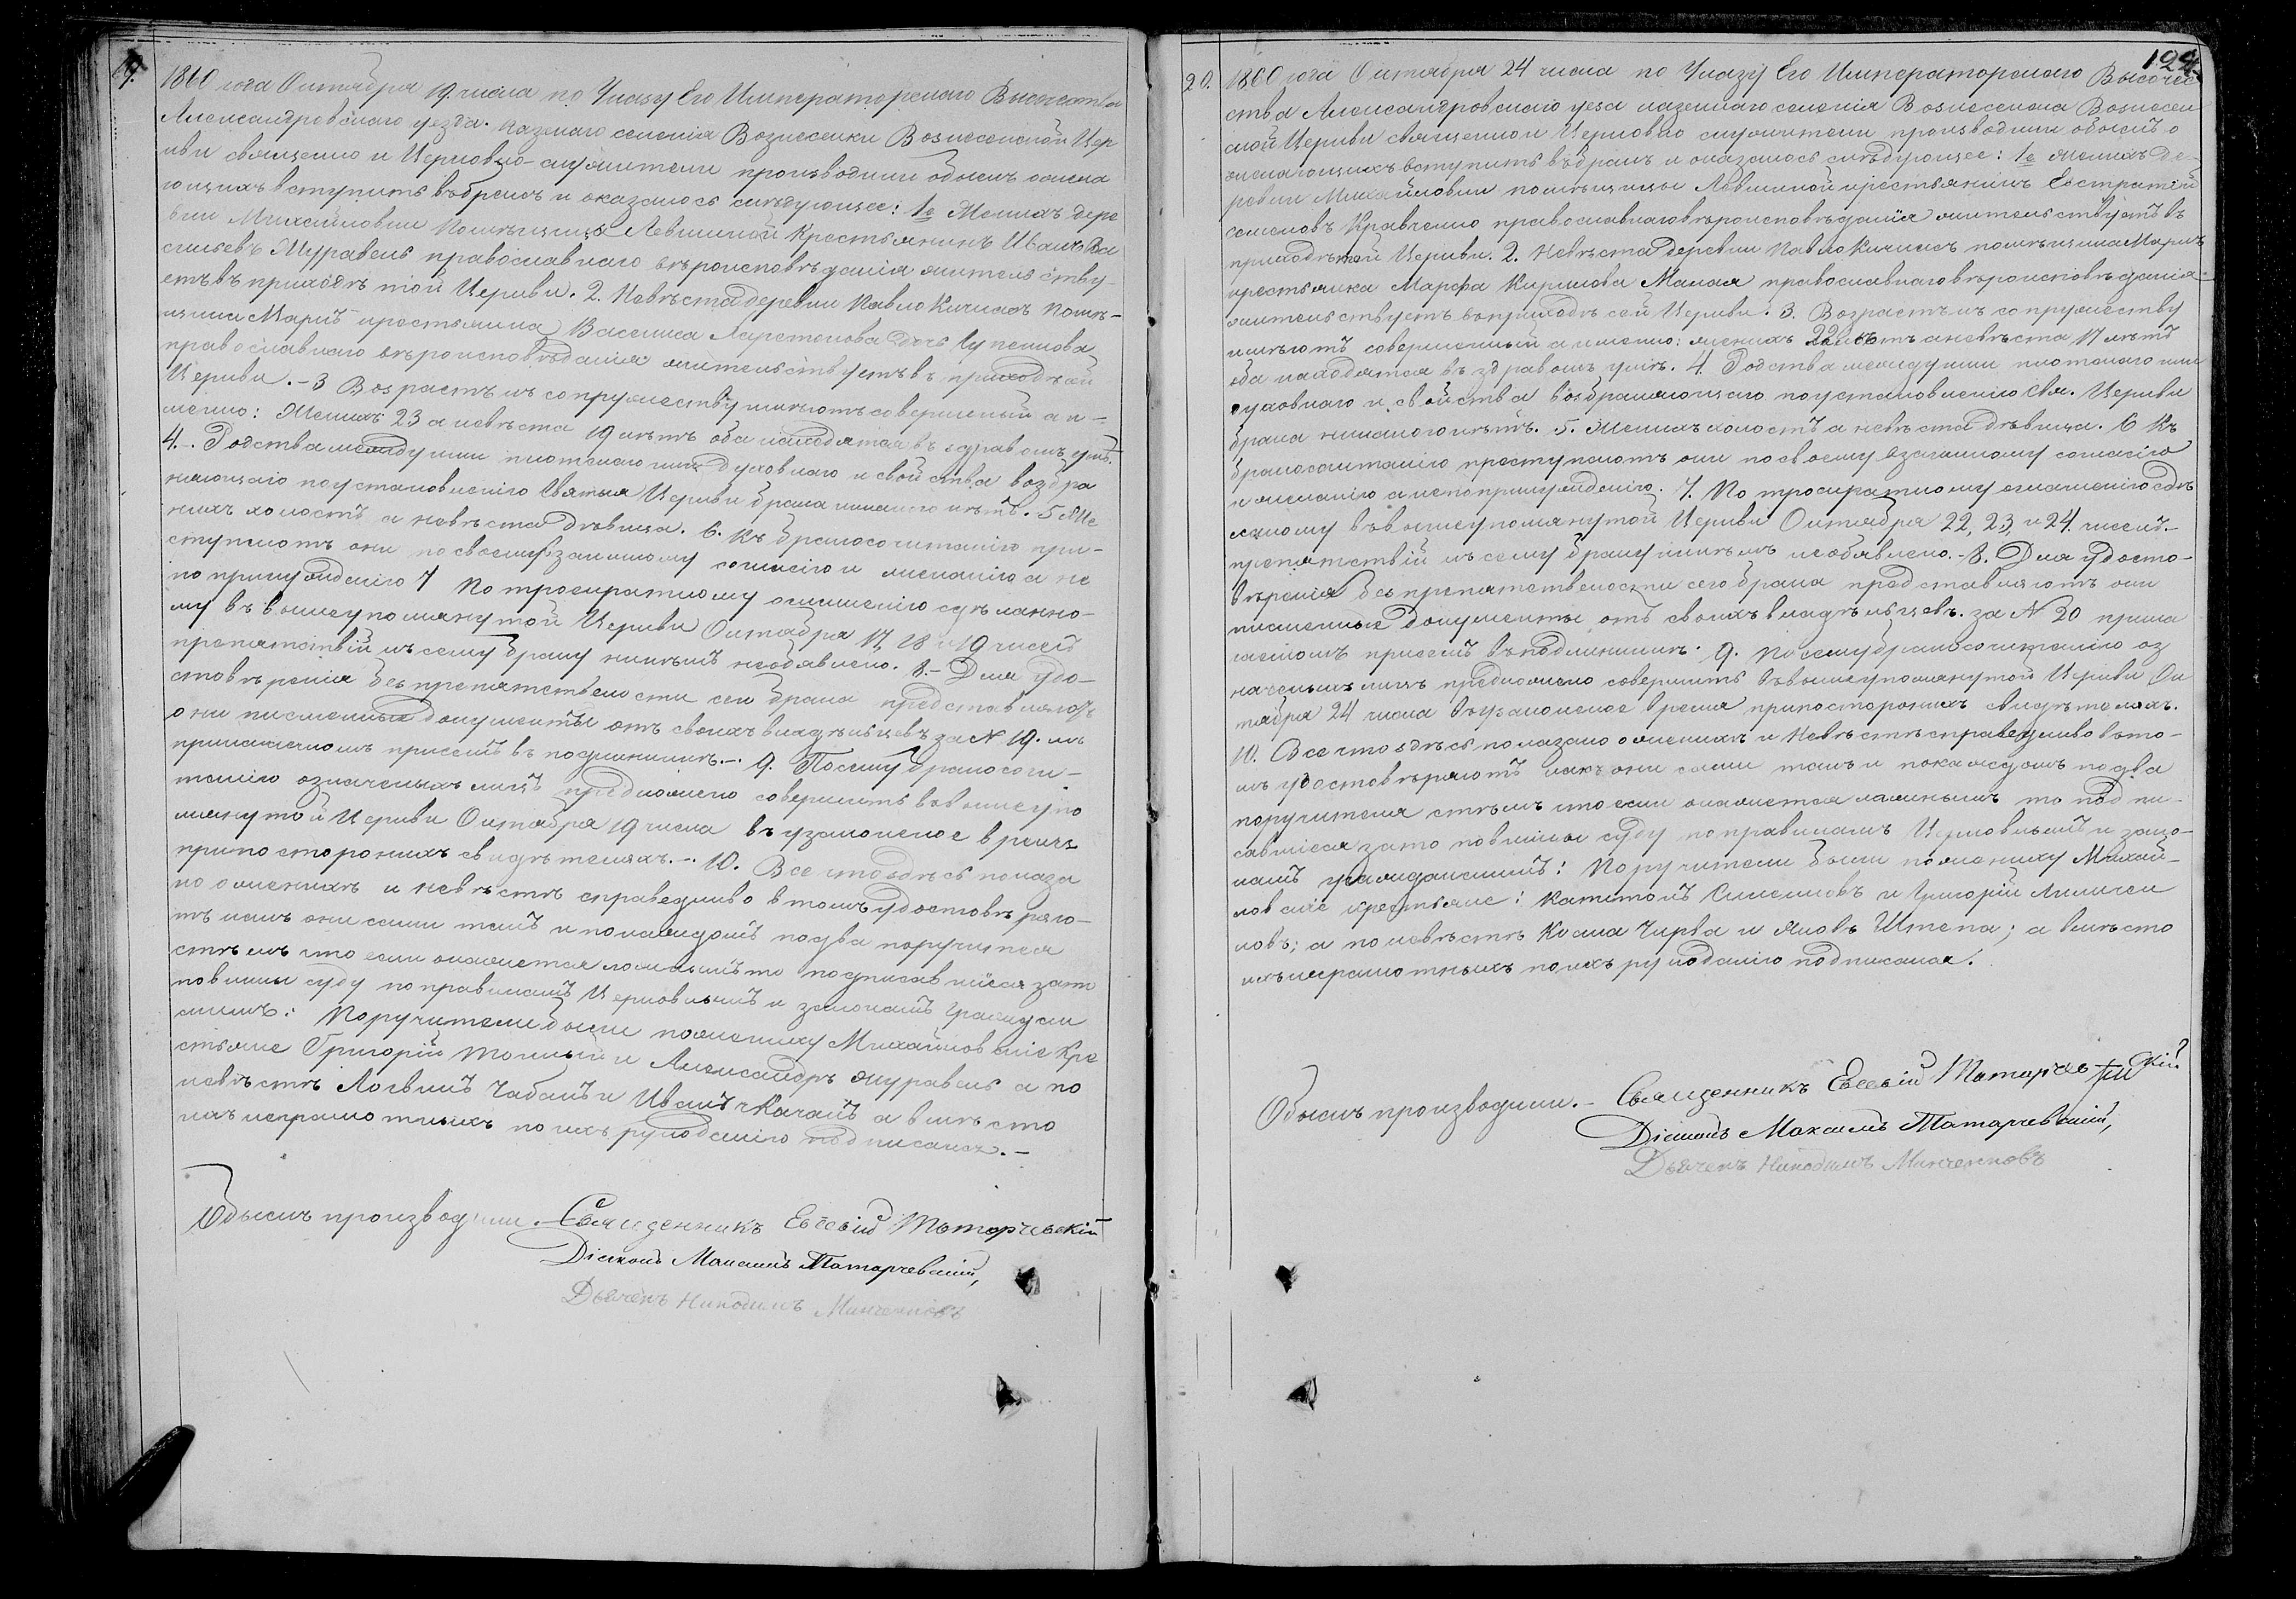 19.
1860 года Октября 19. числа по Указу Его Императорскаго Высочества
Александровскаго уезда. казенаго селенія Вознесенки Вознесенской Цер
кви священно и Церковно-служители производили обыскъ о жела
ющихъ вступить въ бракъ и оказалось слѣдующее: 1е Женихъ дере
вни Михайловки помѣщицы Левшиной Крестьянинъ Иванъ Ва
сильевъ Журавель православнаго вѣроисповѣданія жительству
етъ въ приходѣ той Церкви. 2. Невѣста деревни Павло Кичкасъ помѣ-
щика Маркъ крестьянка Василиса Харитонова дочь
православнаго вѣроисповѣданія жительствуетъ въ приходѣ ей
Церкви. - 3 Возрастъ къ сопружеству имѣютъ совершенный а и-
менно: Женихъ 23 а невѣста 19 лѣтъ оба находятся въ здравомъ умѣ.
4. - Родства между ими плотскаго или духовнаго и свойства возбра
няющаго по установленію Святыя Церкви брака никакого нѣтъ. 5 Же
нихъ холостъ а невѣста дѣвица. 6. Къ бракосочитанію при-
ступаютъ они по своему взаимному согласію и желанію а не
по принужденію 7 По троекратному оглашенію сдѣланно-
му въ вышеупомянутой Церкви Октября 17, 18 и 19 чиселъ
препятствій къ сему браку никѣмъ необявлено. 8. - Для удо-
стовѣренія безпрепятствености сей брака представляютъ
они писменные документы отъ своихъ владѣльцевъ за N 19. къ
прилагаемомъ присемъ въ подлинникъ. -. 9. Посему бракосочи-
танію означеныхъ лицъ предположено совершить въ вышеупо
мянутой Церкви Октября 19 числа въ узаконеное время
припосторонихъ свидѣтеляхъ. -. 10. Все что здѣсь показа
но о женихѣ и невѣстѣ справедливо в томъ удостовѣряю-
тъ какъ они сами такъ и по каждомъ по два поручителя
стѣмъ что если окажется ложнымъ то подписавшіися зато
повинны суду по правиламъ Церковнымъ и законамъ гражданс
кимъ: Поручители были по жениху Михайловскіе Кре
стьяне Григорій Толстый и Александръ Журавель а по
невѣстѣ Логвинъ Чабанъ и Иванъ Качанъ а вмѣсто
ихъ неграмотныхъ по ихъ рукоданію подписался. -
Обыскъ производили. - Священникъ Евсевій Татарчевскій
Діаконъ Максимъ Татарчевскій,
Дьячекъ Никодимъ Минченковъ
124
20. 1860 года Октября 24 числа по Указу Его Императорскаго Высоче
ства Александровскаго уеза казеннаго селенія Вознесенска Вознесен
ской Церкви священно и Церковно служители производили обыскъ о
желающихъ вступить въ бракъ и оказалось слѣдующее: 1е Женихъ де-
ревни Михайловки помѣщицы Левшиной крестьянинъ Евстратій
Семеновъ Кравченко православнаго вѣроисповѣданія жительствуетъ въ
приходѣ той Церкви. 2. Невѣста деревни Павло Кичкасъ помѣщика Маркъ
крестьянка Марфа Кирилова Малая православнаго вѣроисповѣданія
жительствуетъ въ приходѣ сей Церкви. 3. Возрастъ къ сопружеству
имѣютъ совершенный а именно: женихъ 22 лѣтъ а невѣста 17 лѣтъ
оба находятся въ здравомъ умѣ. 4. Родства между ими плотскаго или
духовнаго и свойства возбраняющаго по установленію Свя. Церкви
брака никакого нѣтъ. 5. Женихъ холостъ а невѣста дѣвица. 6 Къ
бракосочитанію преступаютъ они по своему взаимному согласію
и желанію а непопринужденію. 7. По троекратному оглашенію сдѣ
ланому въ вышеупомянутой Церкви Октября 22, 23, и 24. чиселъ.-
препятствій къ сему браку никѣмъ необявлено. - 8. Для удосто-
вѣренія безпрепятствености сего брака представляютъ они
писменные документы отъ своихъ владѣльцевъ. за N 20 прила
гаемомъ присемъ въ подлинникѣ. 9. Посему бракосочитанію оз
наченыхъ лицъ предположено совершить въ вышеупомянутой Церкви Ок
тября 24 числа въ узаконеное время припосторонихъ свидѣтеляхъ.
10. Все что здѣсь показано о женихѣ и Невѣстѣ справедливо вто-
мъ удостовѣряютъ какъ они сами такъ и по каждомъ по два
поручителя стѣмъ что если окажется ложнымъ то подпи-
савшіися зато повинны суду по правиламъ Церковнымъ и зако-
намъ гражданскимъ: Поручители были по жениху Михай-
ловскіе крестьяне: Капитонъ и Григорій
новъ; а по невѣстѣ Косма Чирва и Яковъ Штепа; а вмѣсто
ихъ неграмотныхъ по ихъ рукоданію подписался.
Обыскъ производили. - Священникъ Евсевій Татарчевскій
Діаконъ Максимъ Татарчевскій,
Дьячекъ Никодимъ Минченковъ